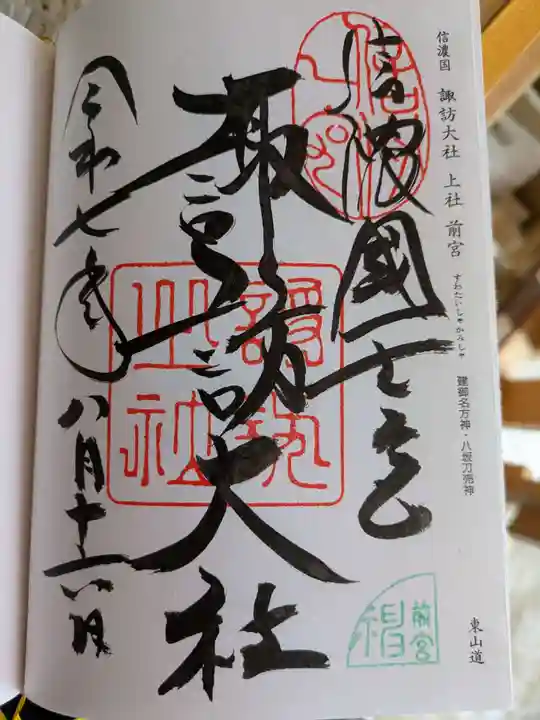 信濃国 諏訪大社 上社 前宮
すわたいしゃかみしゃ
建御名方神・八坂刀売神
東山道
信濃國一之宮
諏訪大社
令和七年八月十六日
諏訪
之社
前宮